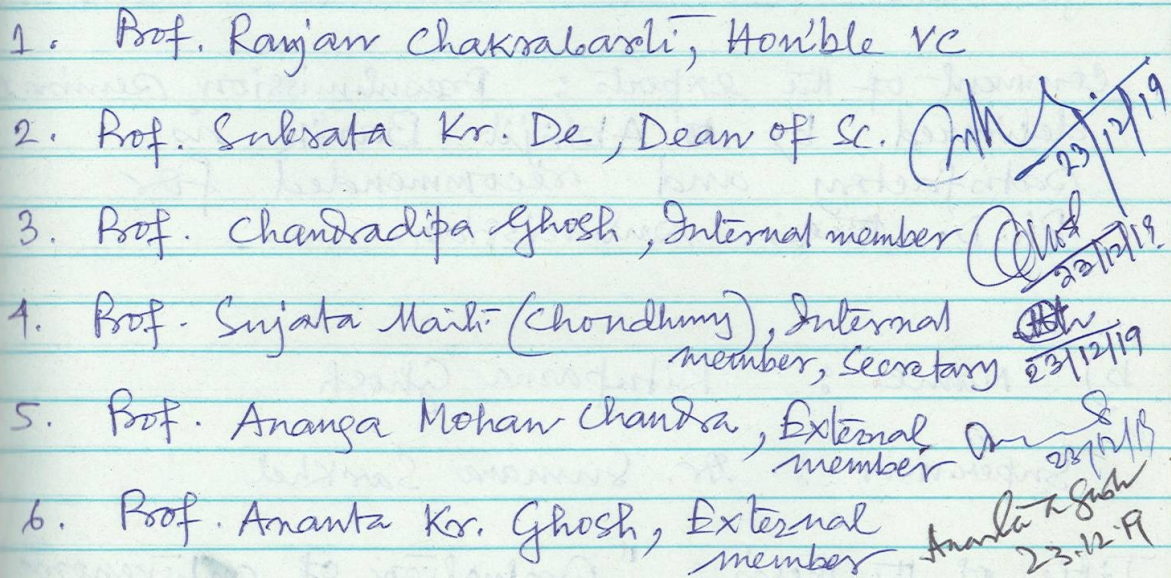 1. Prof. Ranjan Chakrabarti, Hon'ble VC
2. Prof. Subrata Kr. De, Dean of Sc. 23/12/19
3. Prof. Chandradipa Ghosh, Internal member 23/12/19
4. Prof. Sujata Maiti (Choudhury), Internal
member, Secretary 23/12/19
5. Prof. Ananga Mohan Chandra, External
member 23/12/19
6. Prof. Ananta Kr. Ghosh, External
member 23.12.19